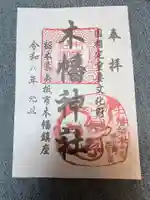 奉拝
国指定重要文化財
木幡神社
栃木県矢板市木幡鎮座
令和八年 元旦